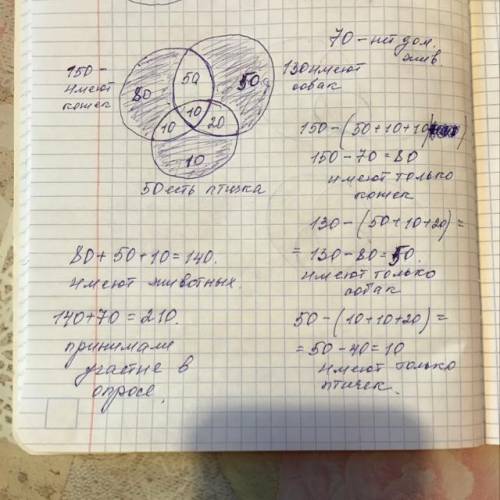 70 – нет дом.
жив
150 –
имеют
кошек
130 имеют
собак
80
50
50
10
10
20
10
50 есть птичка
150 – (50 + 10 + 10)
150 – 70 = 80
имеют только
кошек
130 – (50 + 10 + 20) =
= 130 – 80 = 50.
имеют только
собак
50 – (10 + 10 + 20) =
= 50 – 40 = 10
имеют только
птичек.
80 + 50 + 10 = 140.
имеют животных.
140 + 70 = 210.
принимали
участие в
опросе.